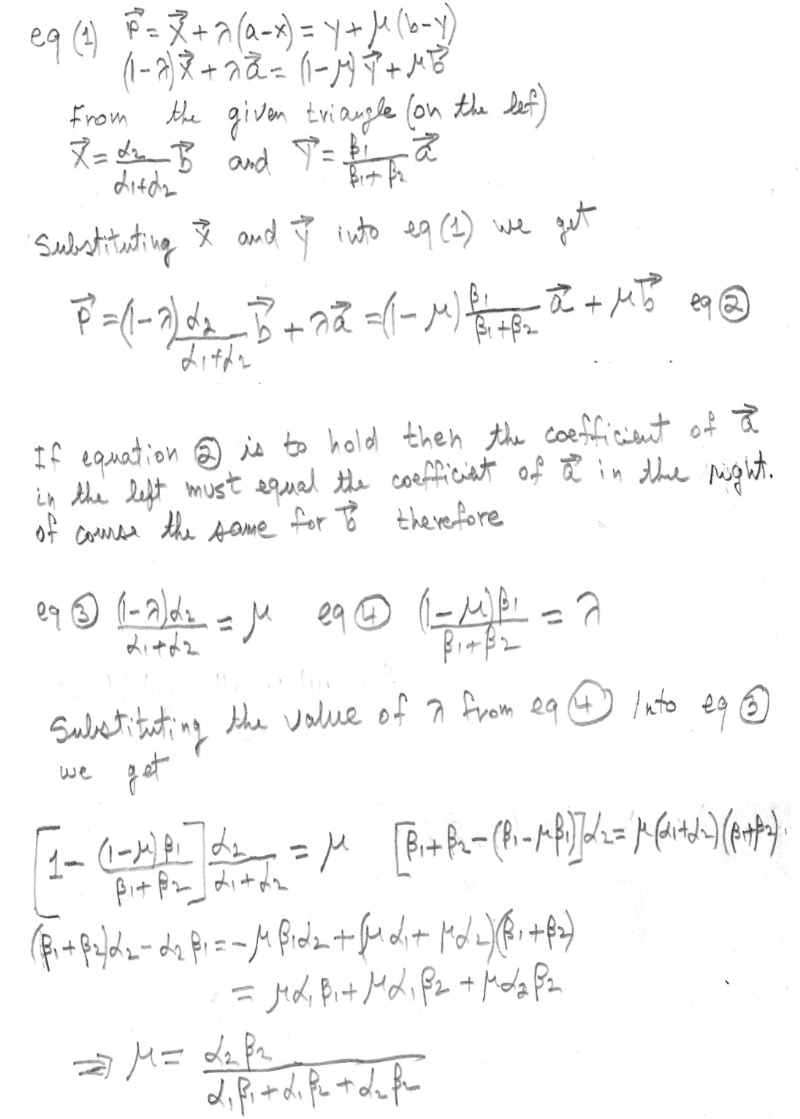 eq (1) p⃗ = x⃗ + λ(a-x) = y + μ(b-y)
(1-λ)x⃗ + λa⃗ = (1-μ)y⃗ + μb⃗
From the given triangle (on the lef)
x⃗ = α₂/(α₁+α₂) b⃗ and y⃗ = β₁/(β₁+β₂) a⃗
Substituting x⃗ and y⃗ into eq (1) we get
p⃗ = (1-λ) α₂/(α₁+α₂) b⃗ + λa⃗ = (1-μ) β₁/(β₁+β₂) a⃗ + μb⃗ eq ②
If equation ② is to hold then the coefficient of a⃗
in the left must equal the coefficiet of a⃗ in the right.
of course the same for b⃗ therefore
eq ③ (1-λ)α₂/(α₁+α₂) = μ eq ④ (1-μ)β₁/(β₁+β₂) = λ
Substituting the value of λ from eq ④ Into eq ③
we get
[1 - (1-μ)β₁/(β₁+β₂)] α₂/(α₁+α₂) = μ [β₁+β₂-(β₁-μβ₁)]α₂ = μ(α₁+α₂)(β₁+β₂).
(β₁+β₂)α₂-α₂β₁ = -μβ₁α₂+(μα₁+μα₂)(β₁+β₂)
= μα₁β₁+μα₁β₂+μα₂β₂
⇒ μ = α₂β₂/(α₁β₁+α₁β₂+α₂β₂)